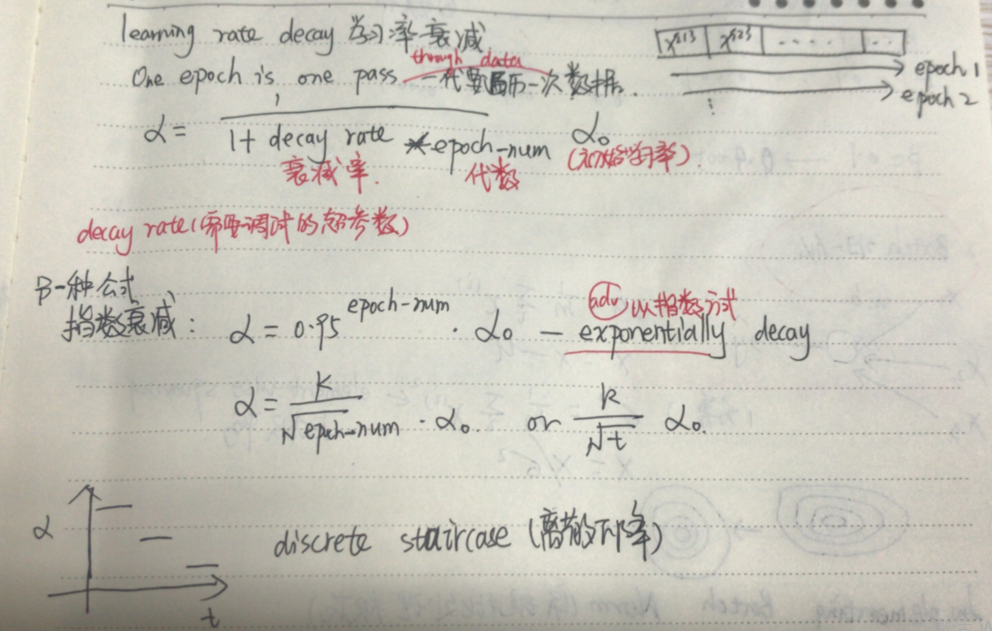 learning rate decay 学习率衰减
x{1} x{2} ..... ..
through data
One epoch is one pass 一代要遍历一次数据.
epoch 1
epoch 2
α = 1 / (1 + decay rate * epoch-num) α₀
衰减率. 代数 (初始学习率).
decay rate (需要调试的超参数)
另一种公式
指数衰减: α = 0.95^epoch-num · α₀ — exponentially decay
adv 以指数方式
α = k / √epoch-num · α₀. or k / √t α₀.
α
discrete staircase (离散下降率)
t